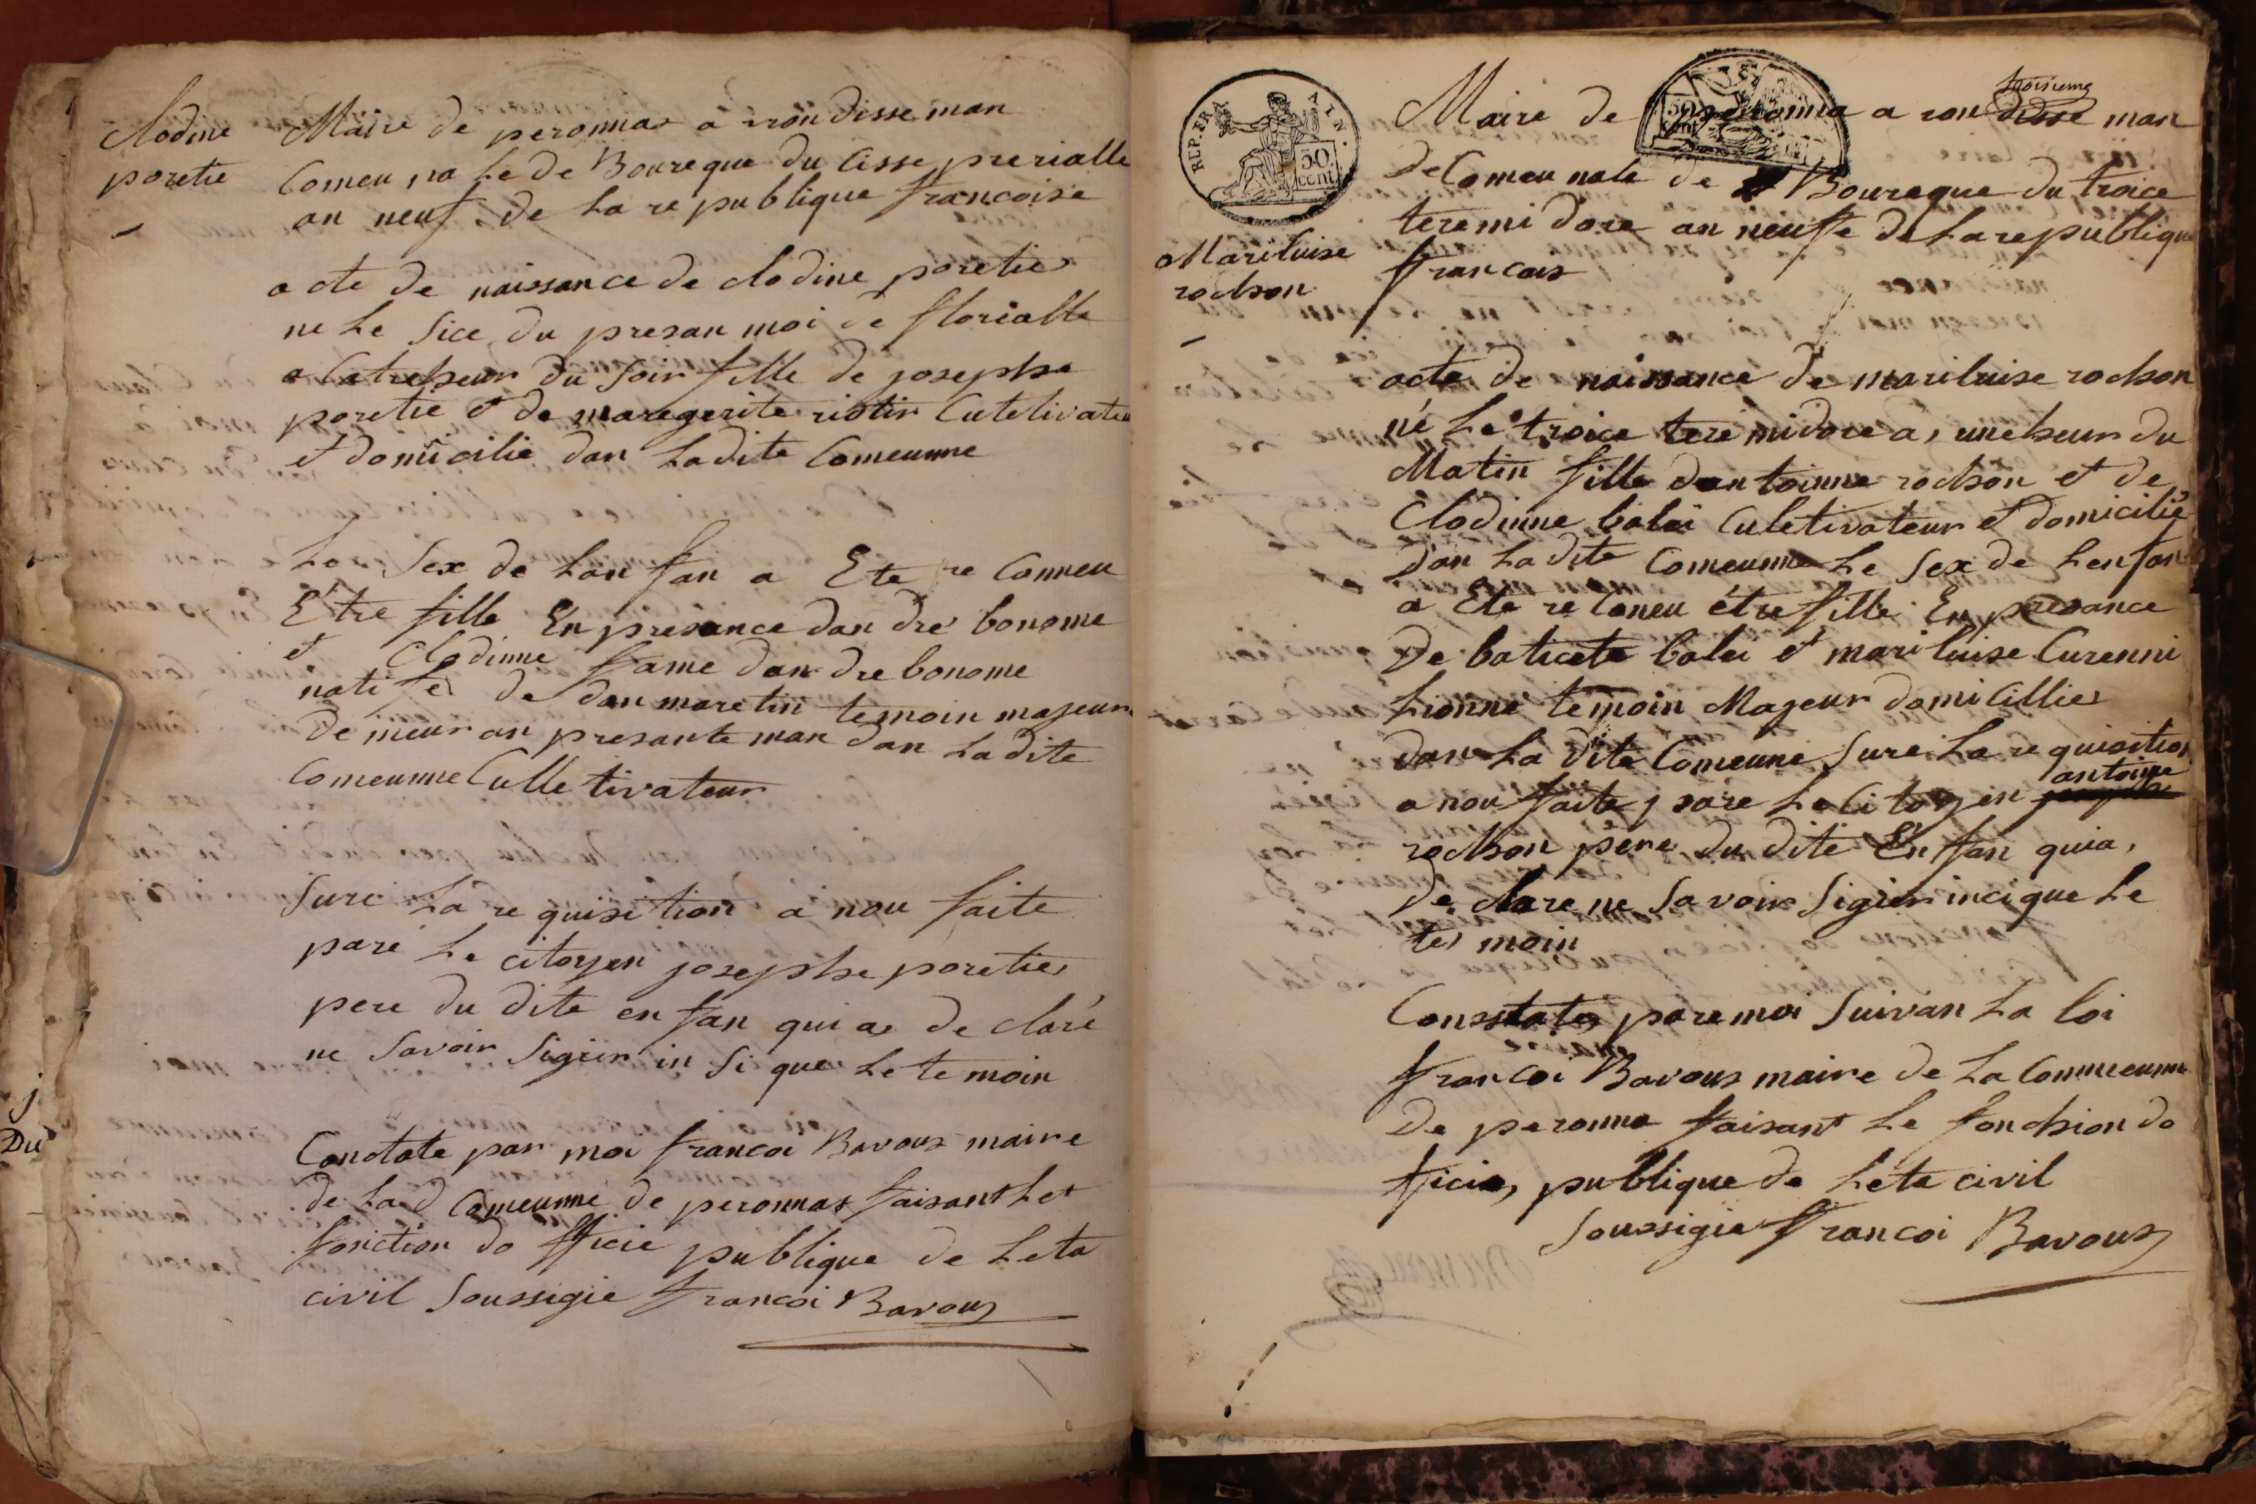 clodine
poretie
Maire de peronnas a rrondisseman
Comeu na le de Boureque du cisse prerialle
an neuf de la republique francoise
acte de naissance de clodine poretie
ne le sice du presan moi de florialle
a Catreheur du soir fille de josephe
poretie et de maregerite ristin Cutelivateur
et domicilie dan ladite Comeunne
Le sex de lan fan a Ete re Conneu
Etre fille En presance dan dre bonome
et Clodinne fame dan dre bonome
natifes de dan maretin temoin majeur
De meuran presante man dan la dite
Comeunne Culletivateur
Sure la re quisition a nou faite
pare le citoyen josephe poretie
pere du dite en fan qui a de claré
ne savoir sigier in si que le temoin
Constate par moi francoi Bavoux maire
de lad Comeunne de peronnas faisant let
fonction do fficie publique de leta
civil soussigie francoi Bavoux
j
Du
REP. FRA
AIN.
50
cent
50
cent
Mariluise
rochon
troisieme
Maire de peronna a ron disse man
De Comeu nale de Boureque du troice
teremidore an neufe de la republique
francais
acte de naissance de mariluise rochon
né le troice teremidore a, uneheur du
Matin fille dantoinne rochon et de
Clodinne balai Culetivateur et domicilié
Dan la dite Comeunne le sex de lenfan
a Ete re Coneu étre fille En presance
De baticete balai et mariluise Curenni
Lionne temoin Mageur domicillies
dan la dite Comeune Sure la re quisition
antoinne
a nou faite pare le Citoyin josephe
rochon pere du dite Enfan quia,
De clare ne savoir sigier inci que le
tes moin
Constates pare moi suivan la loi
francoi Bavoux maire de la Commeunne
de peronna faisant le fonchion do
fficie, publique de leta civil
soussigie francoi Bavoux